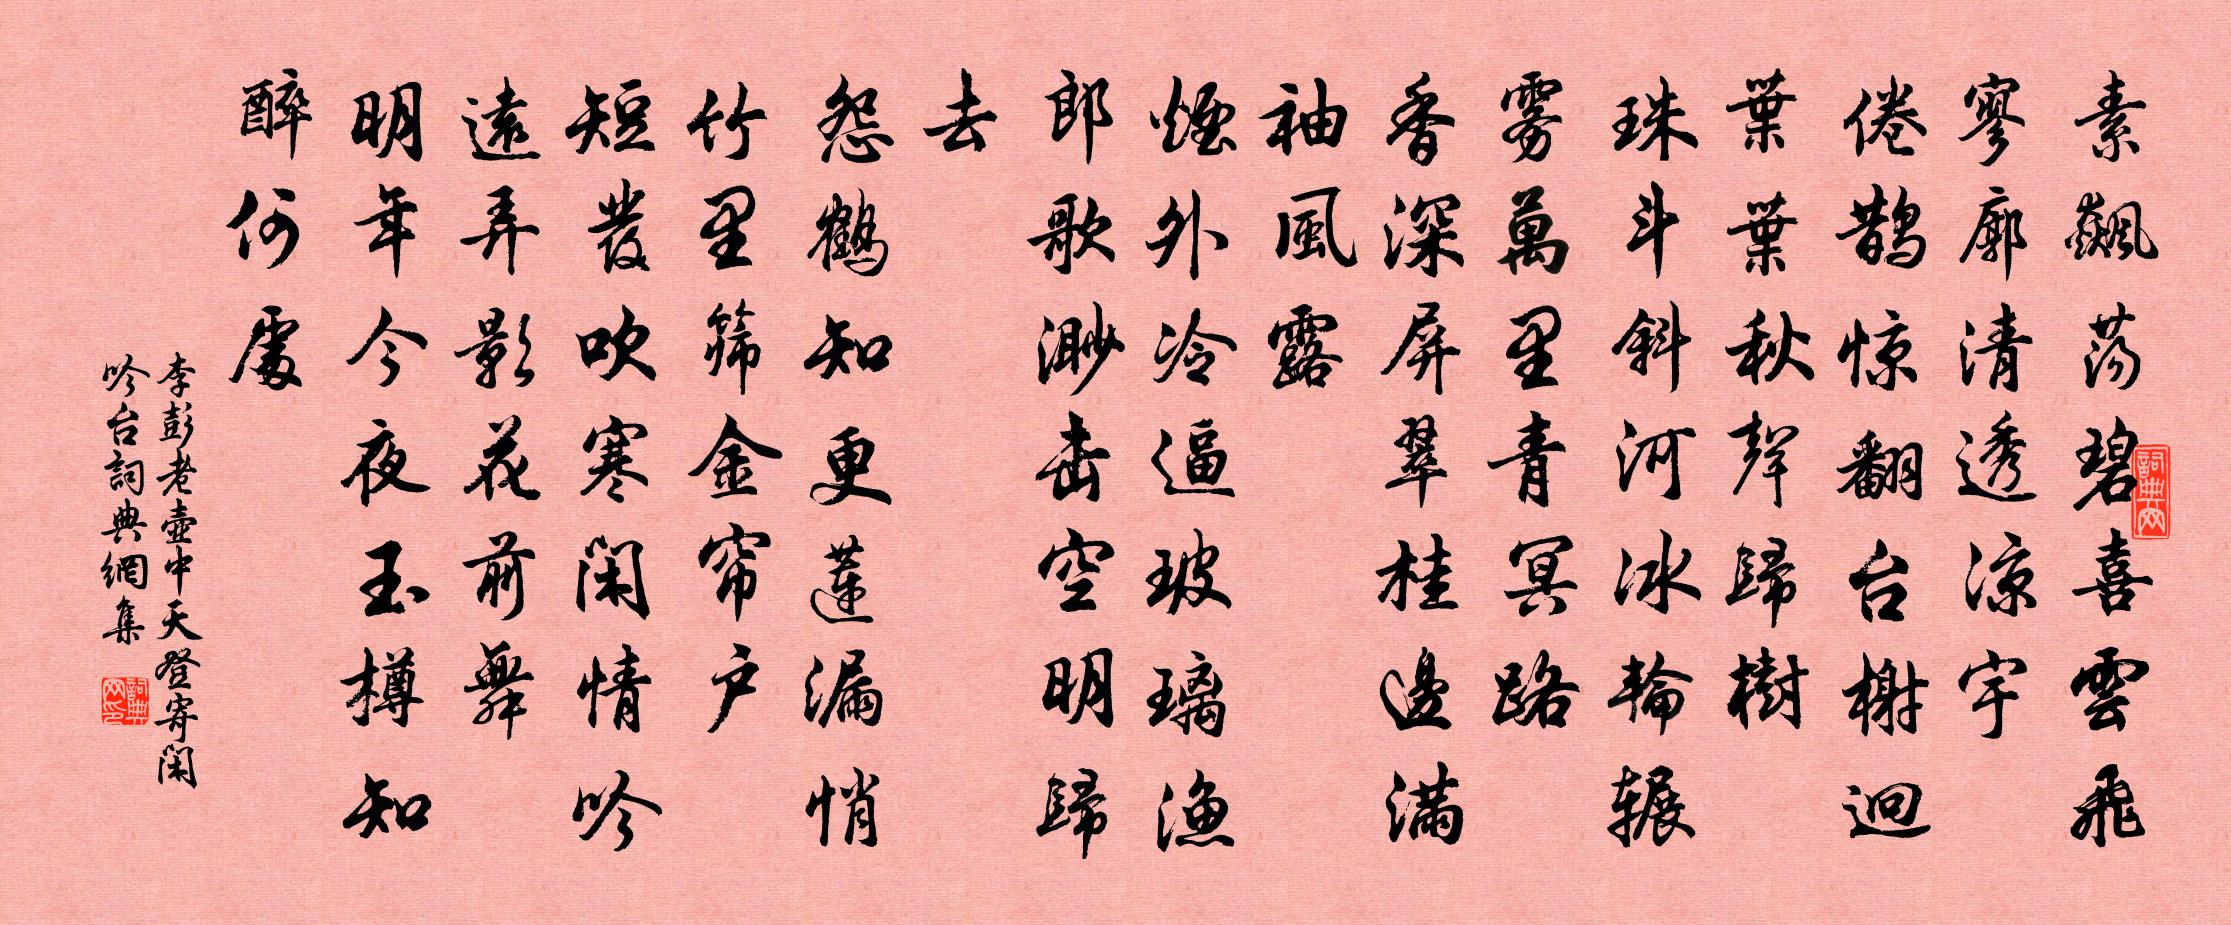 素飆蕩碧喜雲飛
寥廓清透涼宇
倦鵲惊翻台榭迥
葉葉秋聲歸樹
珠斗斜河冰輪辗
雾萬里青冥路
香深屏翠桂邊满
袖風露
煙外冷逼玻璃渔
郎歌渺击空明歸
去
怨鶴知更蓮漏悄
竹里筛金帘户
短發吹寒闲情吟
遠弄影花前舞
明年今夜玉樽知
醉何處
李彭老壺中天登寄闲
吟台詞典網集
詞典网
詞典网印